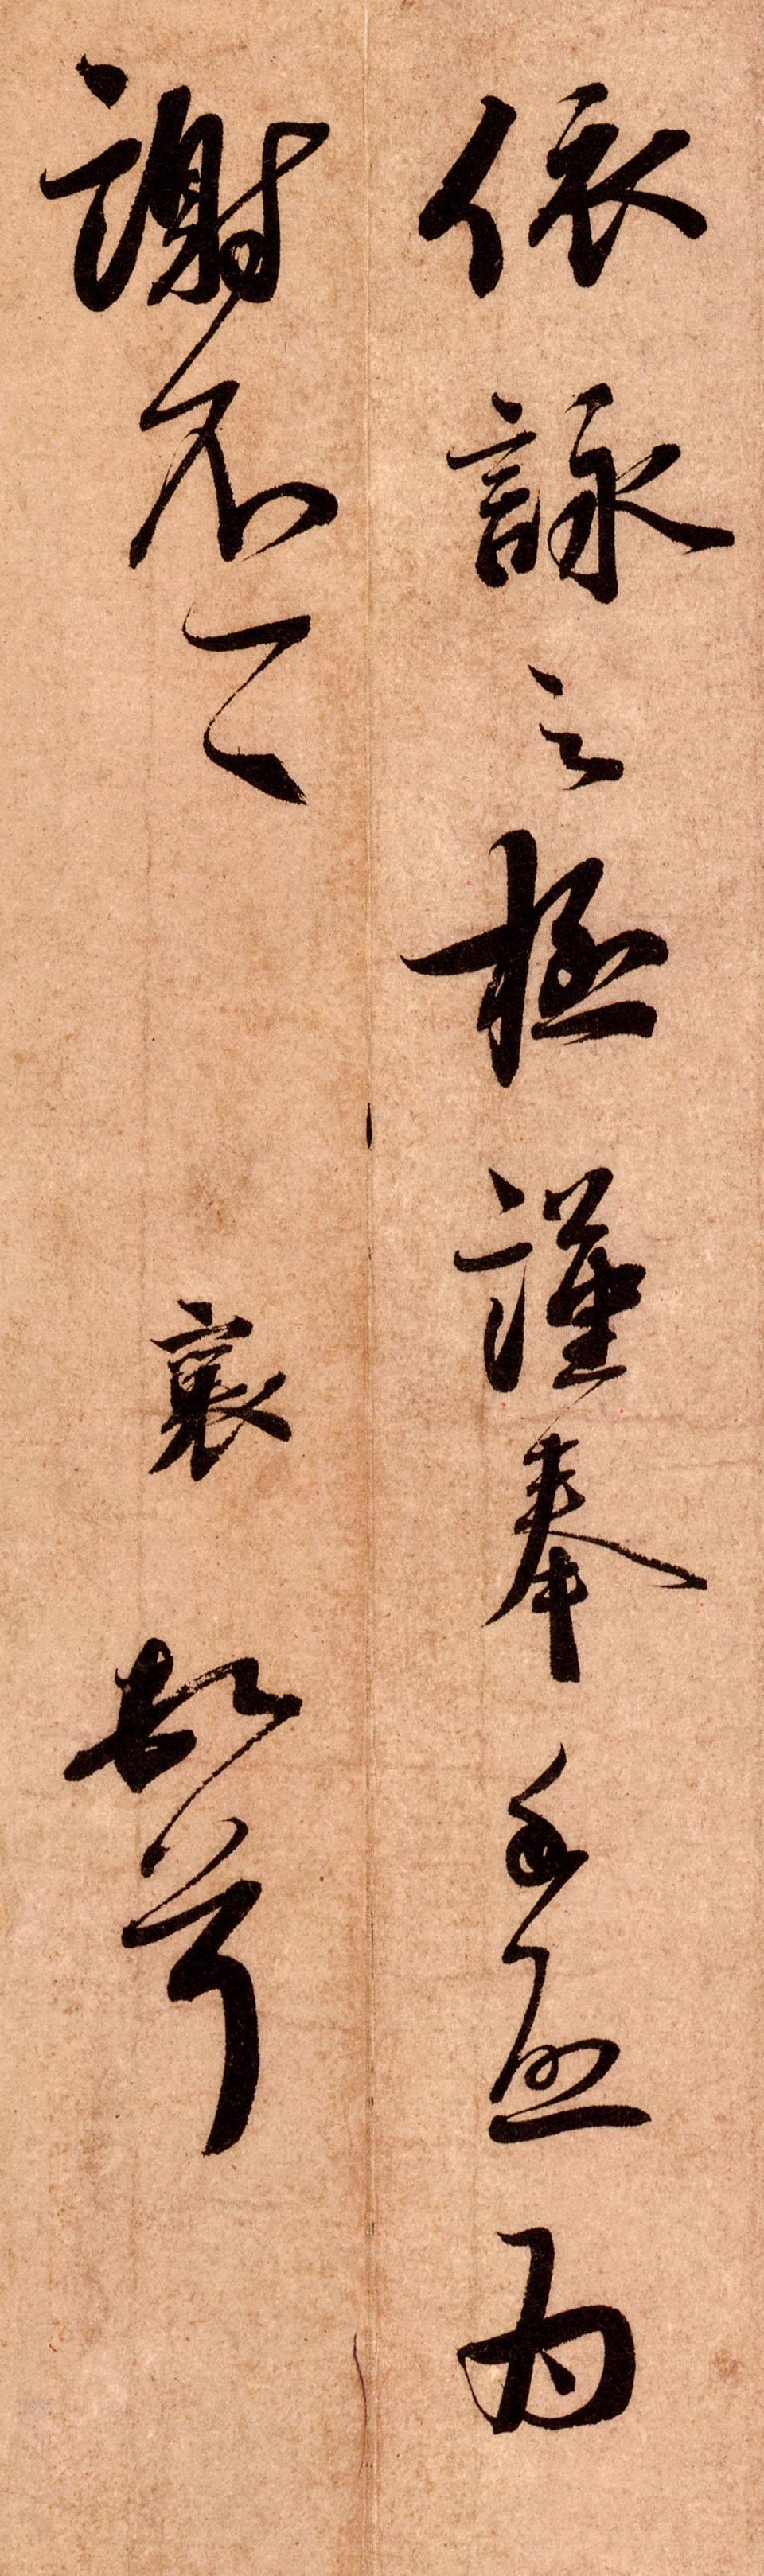 依詠之極謹奉手啟為
謝不一一 襄 頓首